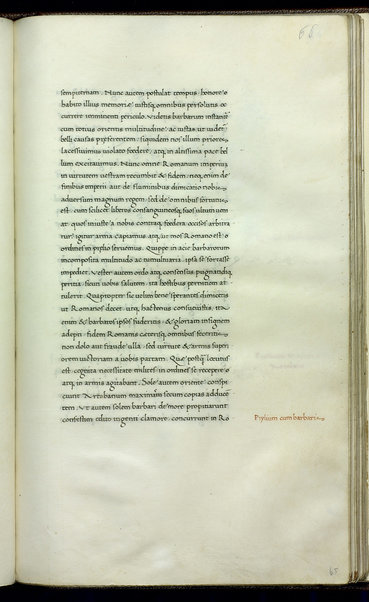 66
sempiternam. Nunc autem postulat tempus honore
habito illius memorię iustisq; omnibus persolutis oc
currere imminenti periculo. Videtis barbarum instantē
cum totius orientis multitudine
belli causas preferentem siquidem nos illum priores
lacessiuimus uiolato foedere atq; in altissima pace bel
lum excitauimus. Nunc omne Romanum imperiū
in uirtutem uestram recumbit & fidem neq; enim de
finibus imperii aut de fluminibus dimicatio nobis
aduersum magnum regem sed de omnibus fortunis
est cum scilicet liberos consanguineosq; suos ultum uen
at quos iniuste a nobis contraq; foedera occisos arbitra
tur igitur arma capiamus atq; ut mos Romanos est
ordines in prælio seruemus. Quippe in acie barbarorum
incomposita multitudo ac tumultuaria ipsa se fortasse
impediet. Vester autem ordo atq; consensus pugnandiq;
peritia sicuti uobis salutem ita hostibus perniciem at
tulerit. Quapropter sic uelim bene sperantes dimicetis
ut Romanos decet utq; hactenus consueuistis, ita
enim & barbaros ipsos fuderitis & gloriam insignem
adepti fidem Romanis cęterisq; omnibus feceritis
non dolo aut fraude ulla sed uirtute & armis superi
orem uictoriam a uobis partam. Quę postq̃ locutus
est cognita necessitate milites in ordines se recepere
atq; in armis agitabant. Sole autem oriente conspi
ciunt Artabanum maximas secum copias adducē
tem. Vt autem solem barbari de more propitiarunt
confestim edito ingenti clamore concurrunt in Ro
Prælium cum barbaris
65